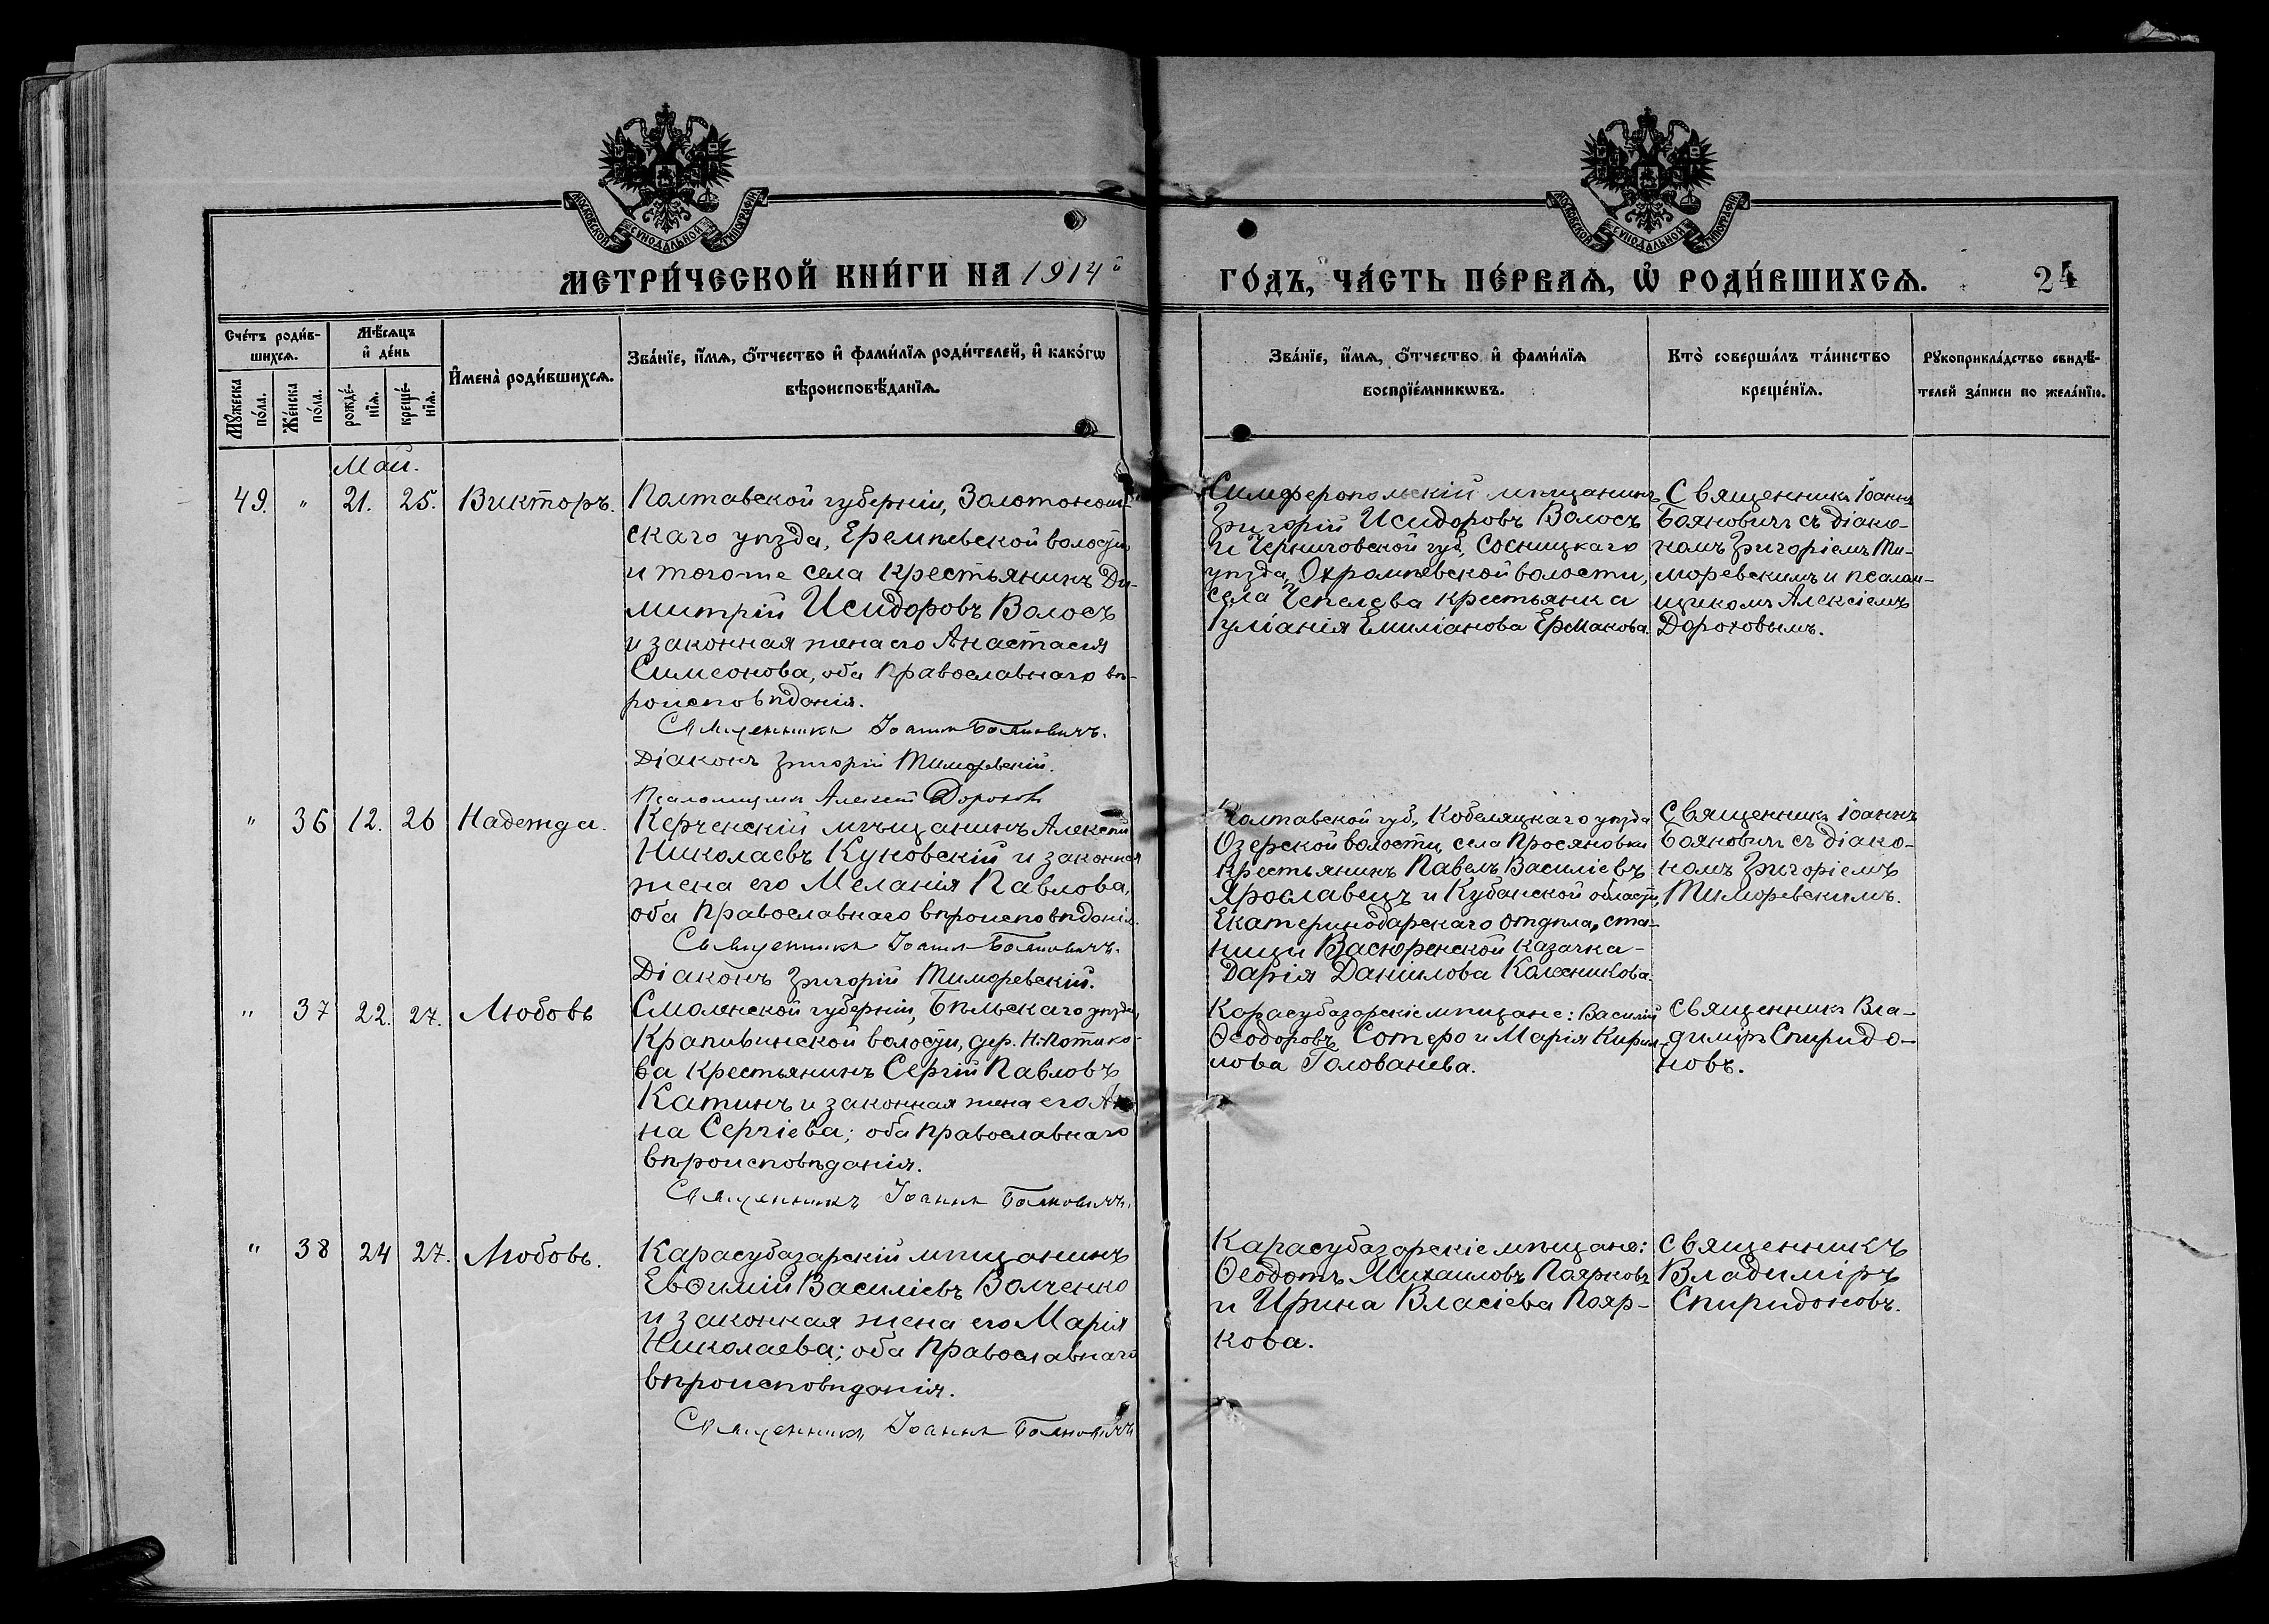 МОСКОВСКОЙ СѴНОДАЛЬНОЙ ТИПОГРАФІИ
МОСКОВСКОЙ СѴНОДАЛЬНОЙ ТИПОГРАФІИ
МЕТРИ́ЧЕСКОЙ КНИ́ГИ НА 1914й
ГО́ДЪ, ЧА́СТЬ ПЕ́РВАѦ, Ѡ҆ РОДИ́ВШИХСѦ. 24
Сче́тъ роди́в-
шихсѧ.
Мꙋ́жеска по́ла.
Же́нска по́ла.
Мѣ́сѧцъ
и҆ де́нь
рожде́-
нїѧ.
креще́-
нїѧ.
И҆мена̀ роди́вшихсѧ.
Зва́нїе, и҆́мѧ, ѻ҆́тчество и҆ фами́лїѧ роди́телей, и҆ како́гѡ
вѣроисповѣ́данїѧ.
Зва́нїе, и҆́мѧ, ѻ҆́тчество и҆ фами́лїѧ
воспрїе́мникѡвъ.
Кто̀ соверша́лъ та́инство
креще́нїѧ.
Рꙋкоприкла́дство свидѣ́-
телей за́писи по жела́нїю.
Май.
49. " 21. 25. Викторъ.
Полтавской губерніи, Золотонош-
скаго уѣзда, Еремѣевской волости
и тогоже села крестьянинъ Ди-
митрій Исидоровъ Волосъ
и законная жена его Анастасія
Симеонова, оба православнаго вѣ-
роисповѣданія.
Священникъ Іоаннъ Бояновичъ.
Діаконъ Григорій Тиморевскій.
Псаломщикъ Алексій Дороховъ
Симферопольскій мѣщанинъ
Григорій Исидоровъ Волосъ
и Черниговской губ., Сосницкаго
уѣзда, Охрамѣевской волости,
села Чепелева крестьянка
Іуліанія Емиліанова Ермакова.
Священникъ Іоаннъ
Бояновичъ съ діако-
номъ Григоріемъ Ти-
моревскимъ и псалом-
щикомъ Алексіемъ
Дороховымъ.
" 36 12. 26 Надежда.
Керченскій мѣщанинъ Алексій
Николаевъ Куковскій и законная
жена его Меланія Павлова,
оба православнаго вѣроисповѣданія.
Священникъ Іоаннъ Бояновичъ.
Діаконъ Григорій Тиморевскій.
Полтавской губ., Кобеляцкаго уѣзда
Озерской волости, села Просяновки
крестьянинъ Павелъ Василіевъ
Ярославецъ и Кубанской области,
Екатеринодарскаго отдѣла, ста-
ницы Васюринской казачка-
Дарія Даніилова Колесникова.
Священникъ Іоаннъ
Бояновичъ съ діако-
номъ Григоріемъ
Тиморевскимъ.
" 37 22. 27. Любовь
Смоленской губерніи, Бѣльскаго уѣзда
Крапивинской волости, дер. Н-Потапо-
ва крестьянинъ Сергій Павловъ
Катинъ и законная жена его Ан-
на Сергіева; оба православнаго
вѣроисповѣданія.
Священникъ Іоаннъ Бояновичъ.
Карасубазарскіе мѣщане: Василій
Ѳеодоровъ Сотеро и Марія Кирил-
лова Голованева.
Священникъ Вла-
диміръ Спиридо-
новъ.
" 38 24 27. Любовь.
Карасубазарскій мѣщанинъ
Евѳимій Василіевъ Волченко
и законная жена его Марія
Николаева; оба православнаго
вѣроисповѣданія.
Священникъ Іоаннъ Бояновичъ
Карасубазарскіе мѣщане:
Ѳеодотъ Михаиловъ Поярковъ
и Ирина Власіева Пояр-
кова.
Священникъ
Владиміръ
Спиридоновъ.